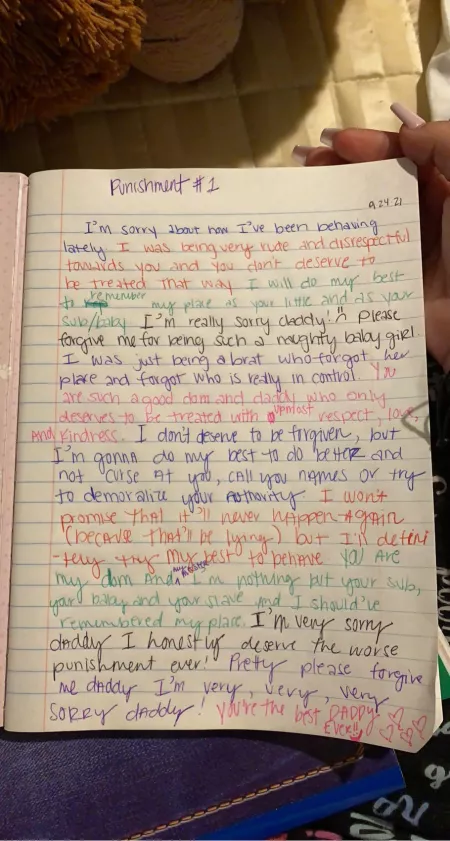 Punishment #1
9.24.21
I'm sorry about how I've been behaving
lately I was being very rude and disrespectful
towards you and you don't deserve to
be treated that way I will do my best
to remember my place as your little and as your
sub/baby I'm really sorry daddy! Please
forgive me for being such a naughty baby girl
I was just being a brat who forgot her
place and forgot who is really in control. You
are such a good dom and daddy who only
deserves to be treated with upmost respect, love,
And kindness. I don't deserve to be forgiven, but
I'm gonna do my best to do better and
not curse at you, call you names or try
to demoralize your authority I won't
promise that it'll never happen again
(because that'll be lying) but I'll defini
-tely try my best to behave you are
my dom And I'm nothing but your sub,
your baby and your slave and I should've
remembered my place. I'm very sorry
daddy I honestly deserve the worse
punishment ever! Pretty please forgive
me daddy I'm very, very, very
sorry daddy! you're the best DADDY
Ever!!